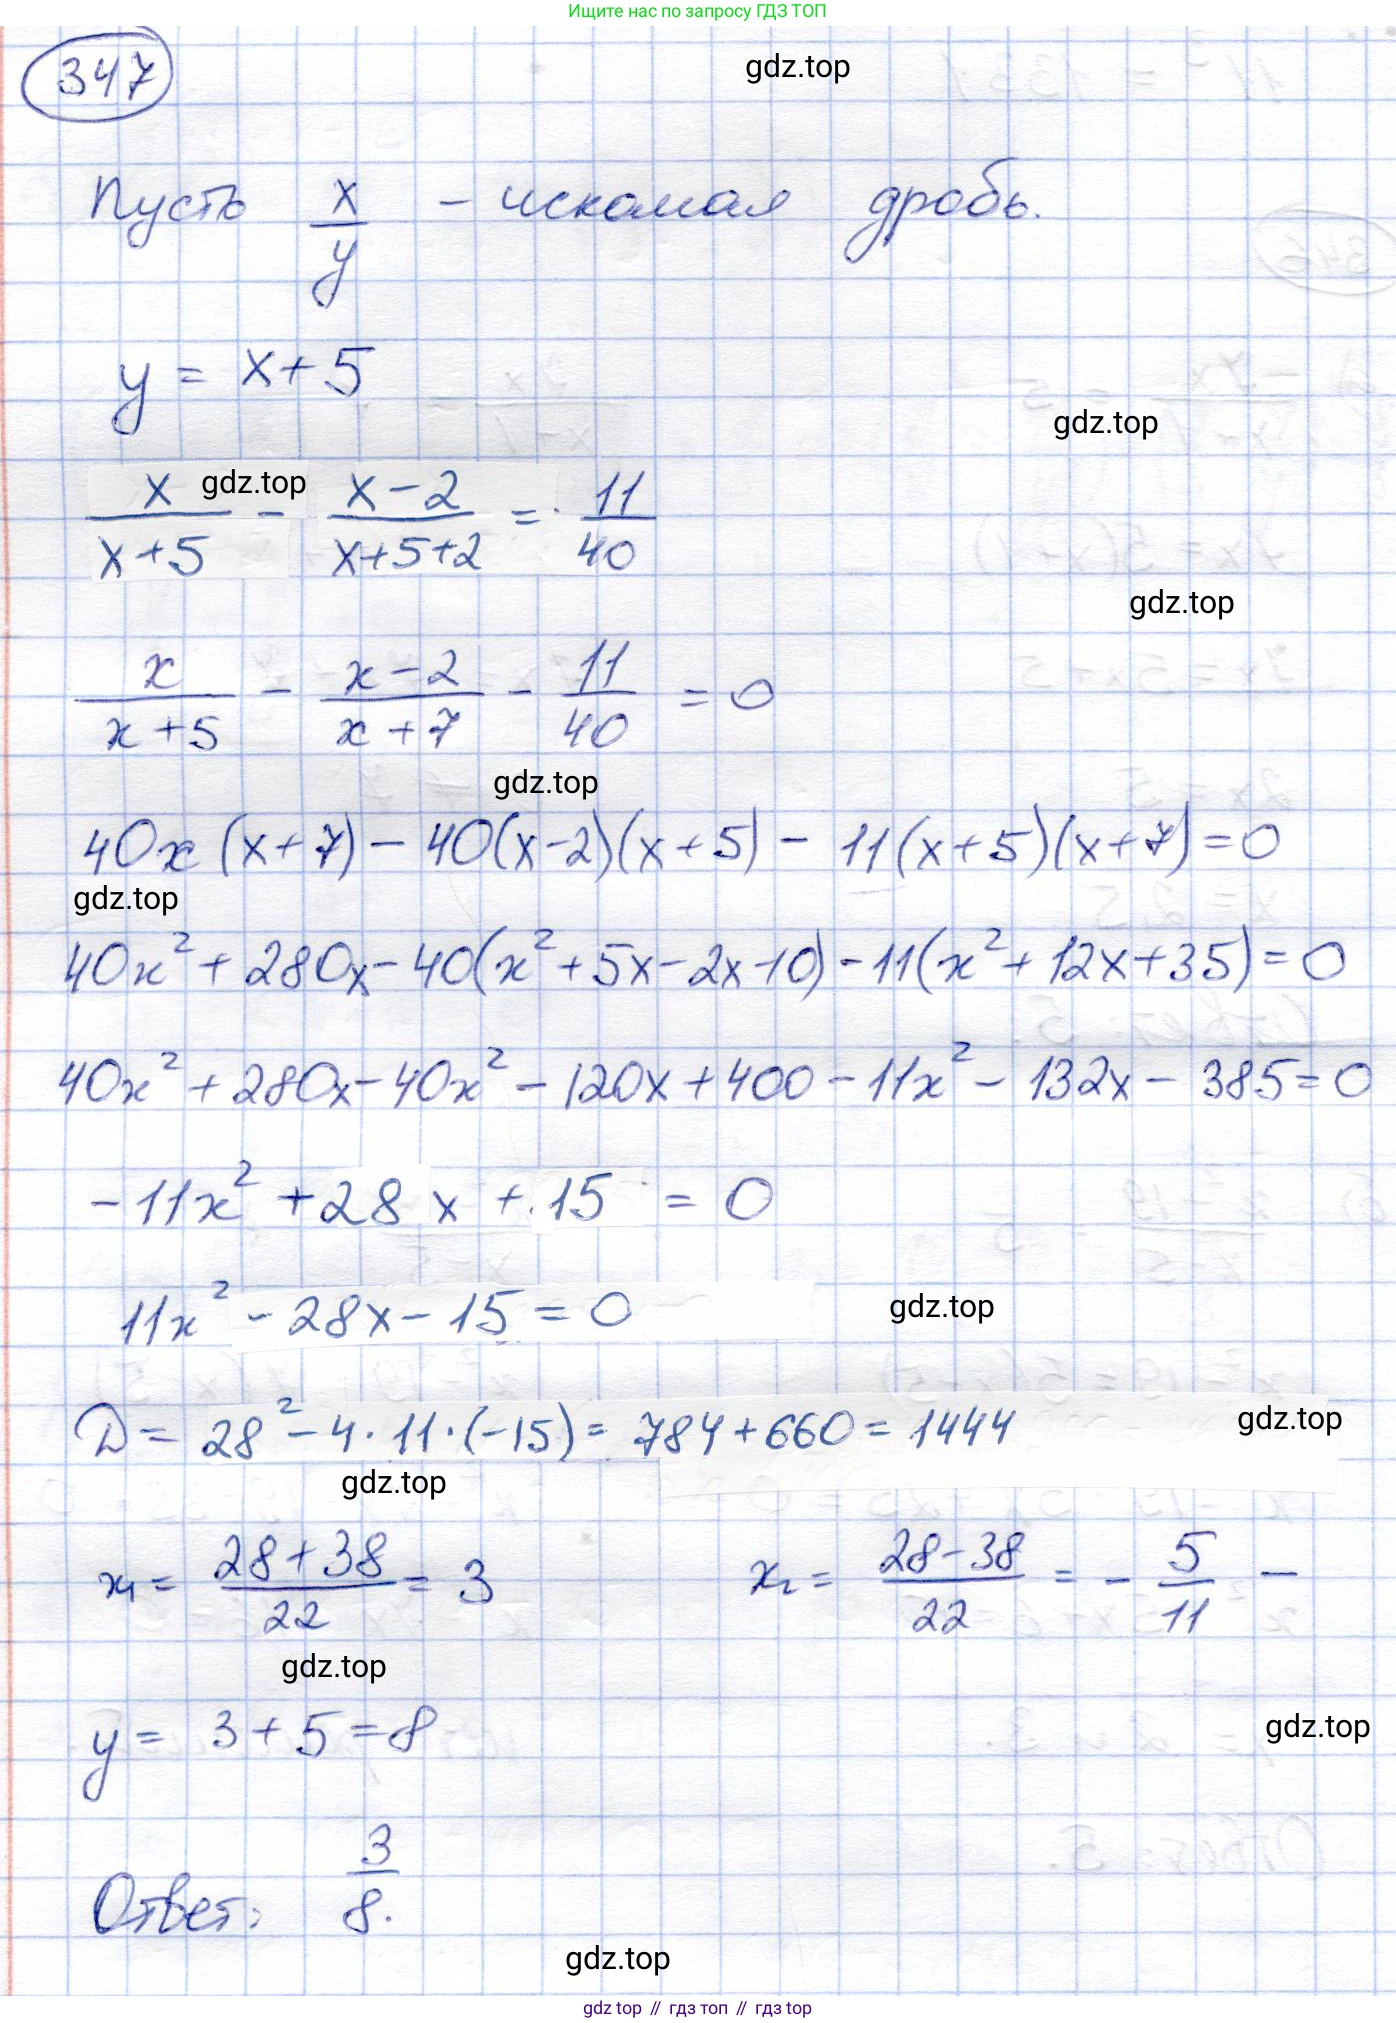 Ищите нас по запросу ГДЗ ТОП
347
gdz.top
Пусть x/y - искомая дробь.
y = x+5
gdz.top
gdz.top
x/(x+5) - (x-2)/(x+5+2) = 11/40
gdz.top
x/(x+5) - (x-2)/(x+7) - 11/40 = 0
gdz.top
40x(x+7) - 40(x-2)(x+5) - 11(x+5)(x+7) = 0
gdz.top
40x² + 280x - 40(x² + 5x - 2x - 10) - 11(x² + 12x + 35) = 0
40x² + 280x - 40x² - 120x + 400 - 11x² - 132x - 385 = 0
-11x² + 28x + 15 = 0
11x² - 28x - 15 = 0
gdz.top
D = 28² - 4·11·(-15) = 784 + 660 = 1444
gdz.top
gdz.top
x₁ = (28+38)/22 = 3   x₂ = (28-38)/22 = -5/11 -
gdz.top
y = 3 + 5 = 8
gdz.top
Ответ: 3/8.
gdz.top
gdz top // гдз топ // гдз top